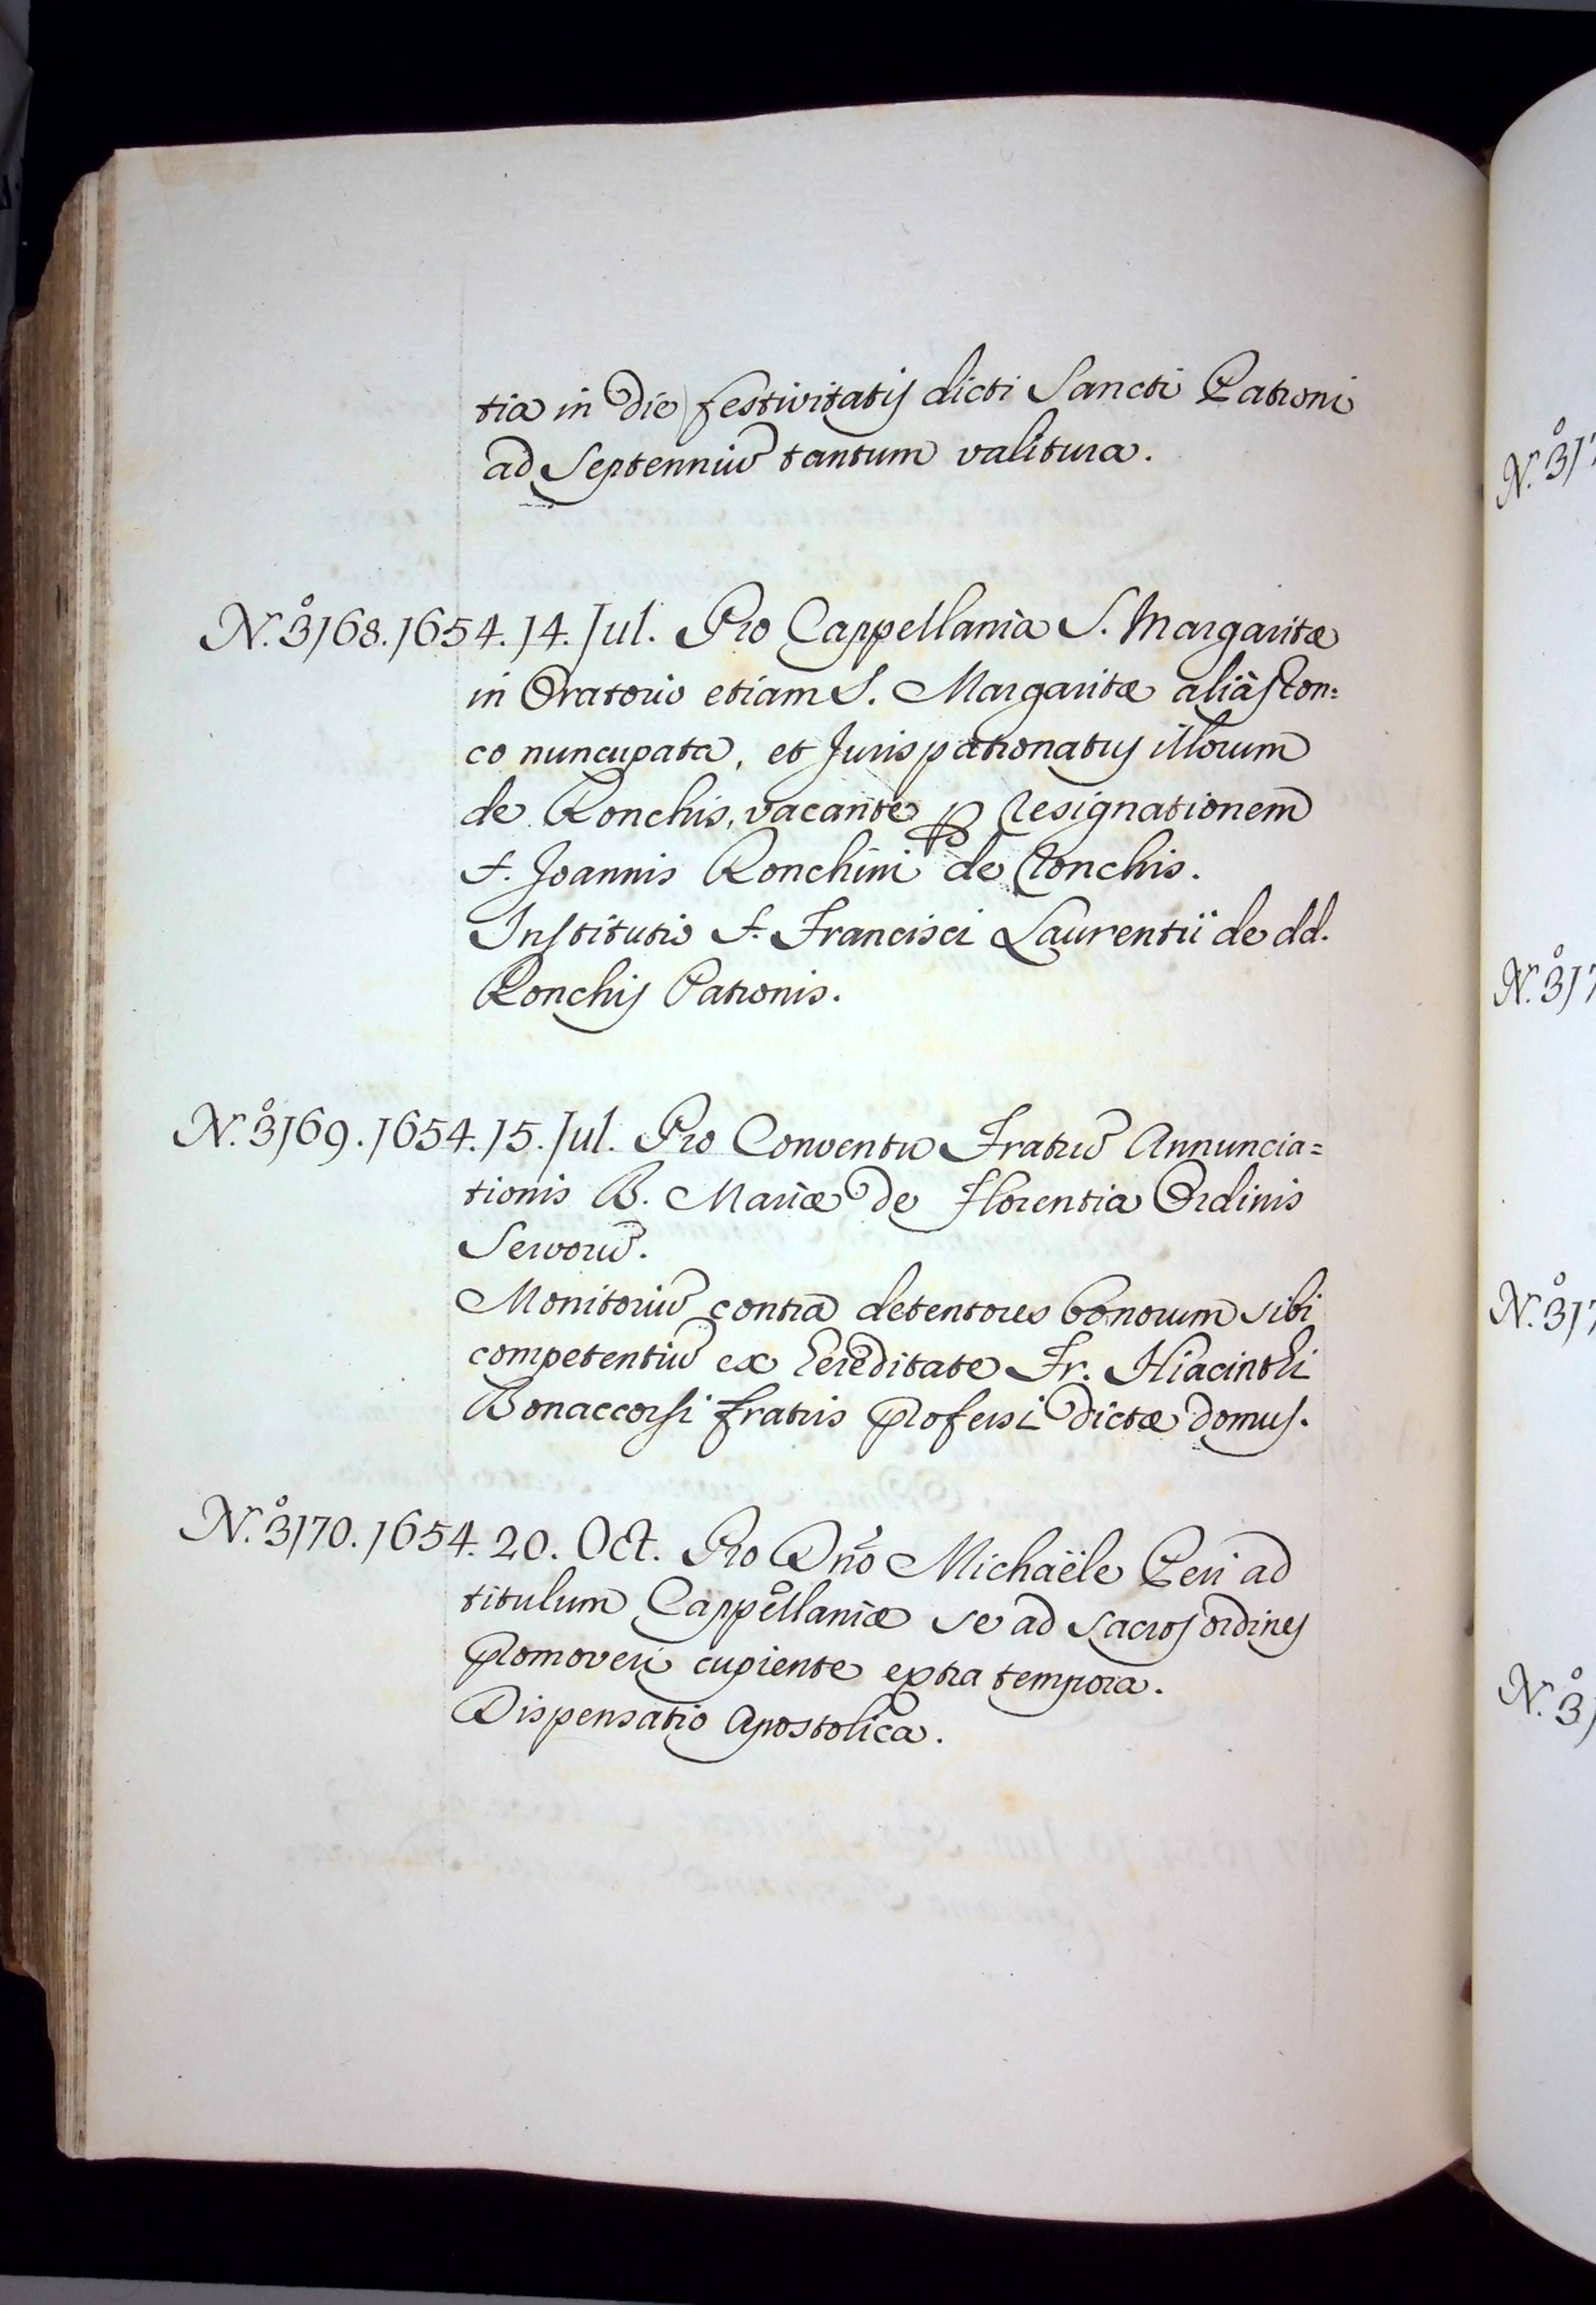 tia in die festivitatis dicti Sancti Patroni
ad Septenniũ tantum valitura.
N.º 3168. 1654. 14. Jul. Pro Cappellania S. Margaritæ
in Oratorio etiam S. Margaritæ aliàs Ron=
co nuncupata, et Juris patronatus illorum
de Ronchis, vacante p resignationem
f. Joannis Ronchini de Ronchis.
Institutio f. Francisci Laurentii de dd.
Ronchis Patronis.
N.º 3169. 1654. 15. Jul. Pro Conventu Fratrũ Annuncia=
tionis B. Mariæ de Florentia Ordinis
Servorũ.
Monitoriũ contra detentores bonorum sibi
competentiũ ex hereditate Fr. Hiacinthi
Bonaccorsi fratris professi dictæ domus.
N.º 3170. 1654. 20. Oct. Pro Dño Michaële Peri ad
titulum Cappellaniæ se ad sacros ordines
promoveri cupiente extra tempora.
Dispensatio Apostolica.
N.º 317
N.º 317
N.º 317
N.º 3